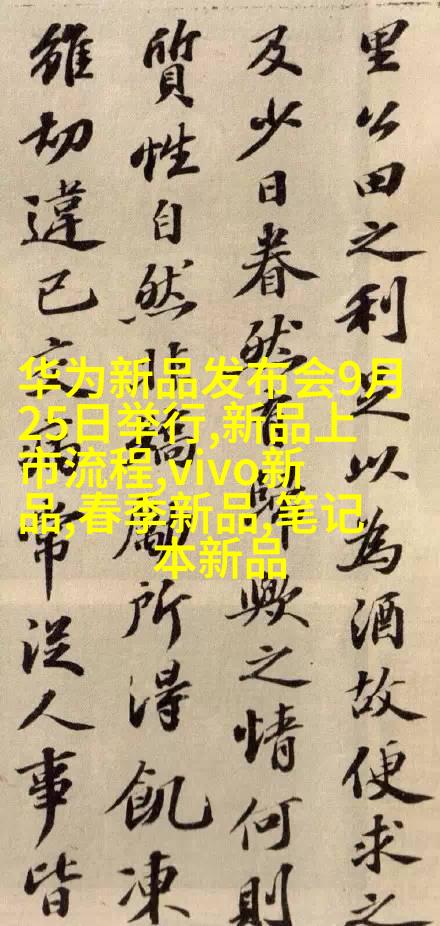 里公田之利足以為酒故便求之
及少日眷然有歸歟之情何則
質性自然非矯勵所得飢凍
雖切違己交病嘗從人事皆
华为新品发布会9月
25日举行,新品上
市流程,vivo新
品,春季新品,笔记
本新品